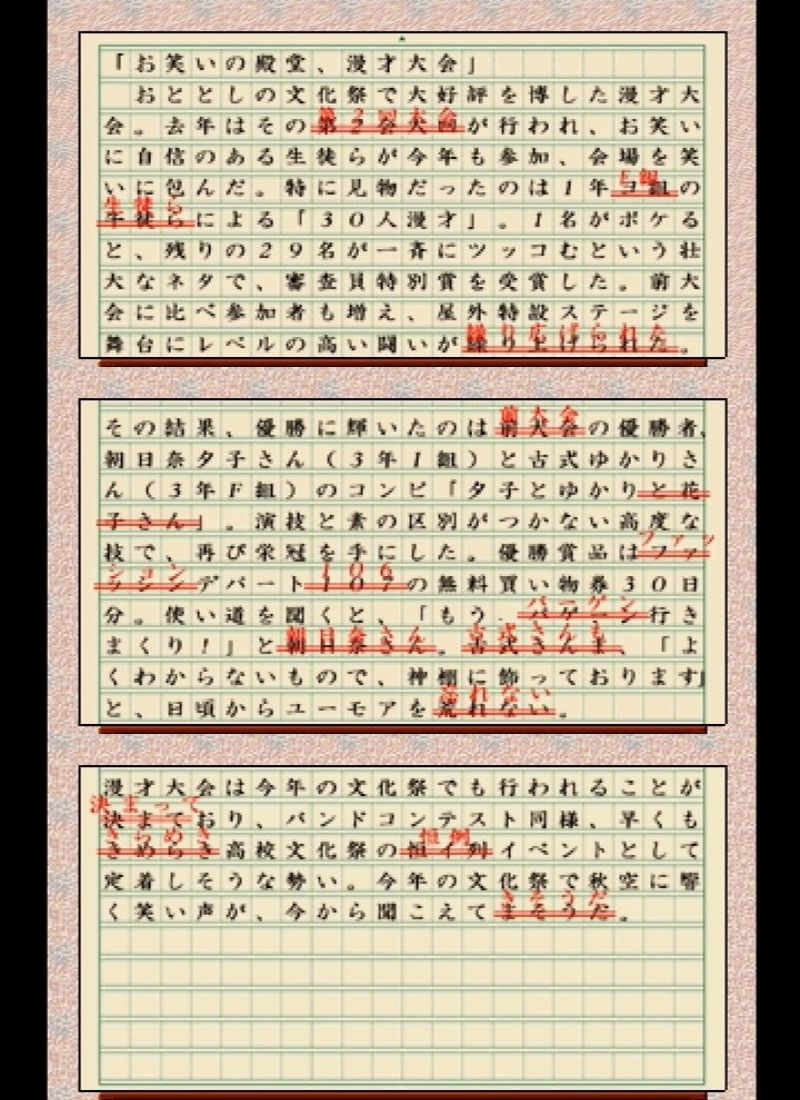 「お笑いの殿堂、漫才大会」
おととしの文化祭で大好評を博した漫才大
第２回大会
会。去年はその第２会大両が行われ、お笑い
に自信のある生徒らが今年も参加、会場を笑
Ｅ組
いに包んだ。特に見物だったのは１年ヨ組の
生徒ら
牛徒らによる「３０人漫才」。１名がボケる
と、残りの２９名が一斉にツッコむという壮
大なネタで、審査員特別賞を受賞した。前大
会に比べ参加者も増え、屋外特設ステージを
繰り広げられた
舞台にレベルの高い闘いが繰り上げられれた。
その結果、優勝に輝いたのは
前大会
前犬会の優勝者、
朝日奈夕子さん（３年Ｉ組）と古式ゆかりさ
ん（３年Ｆ組）のコンビ「夕子とゆかりと花
子さん」。演技と素の区別がつかない高度な
ファッ
技で、再び栄冠を手にした。優勝賞品はファ
ション
１０６
デパート１０７の無料買い物券３０日
バーゲン
分。使い道を聞くと、「もう、行き
朝日奈さん
古式さんも
まくり！」と朝日奈きん。古式さんま、「よ
くわからないもので、神棚に飾っております」
荒れない
と、日頃からユーモアを荒れない。
漫才大会は今年の文化祭でも行われることが
決まって
決まており、バンドコンテスト同様、早くも
きらめき
恒例
きめらき高校文化祭の恒イ列イベントとして
定着しそうな勢い。今年の文化祭で秋空に響
きそうだ
く笑い声が、今から聞こえてまそうだ。